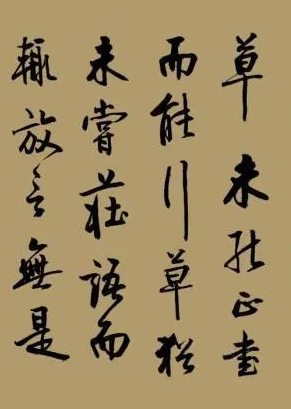 草未能正書
而能行草猶
未嘗莊語而
輒放言無是